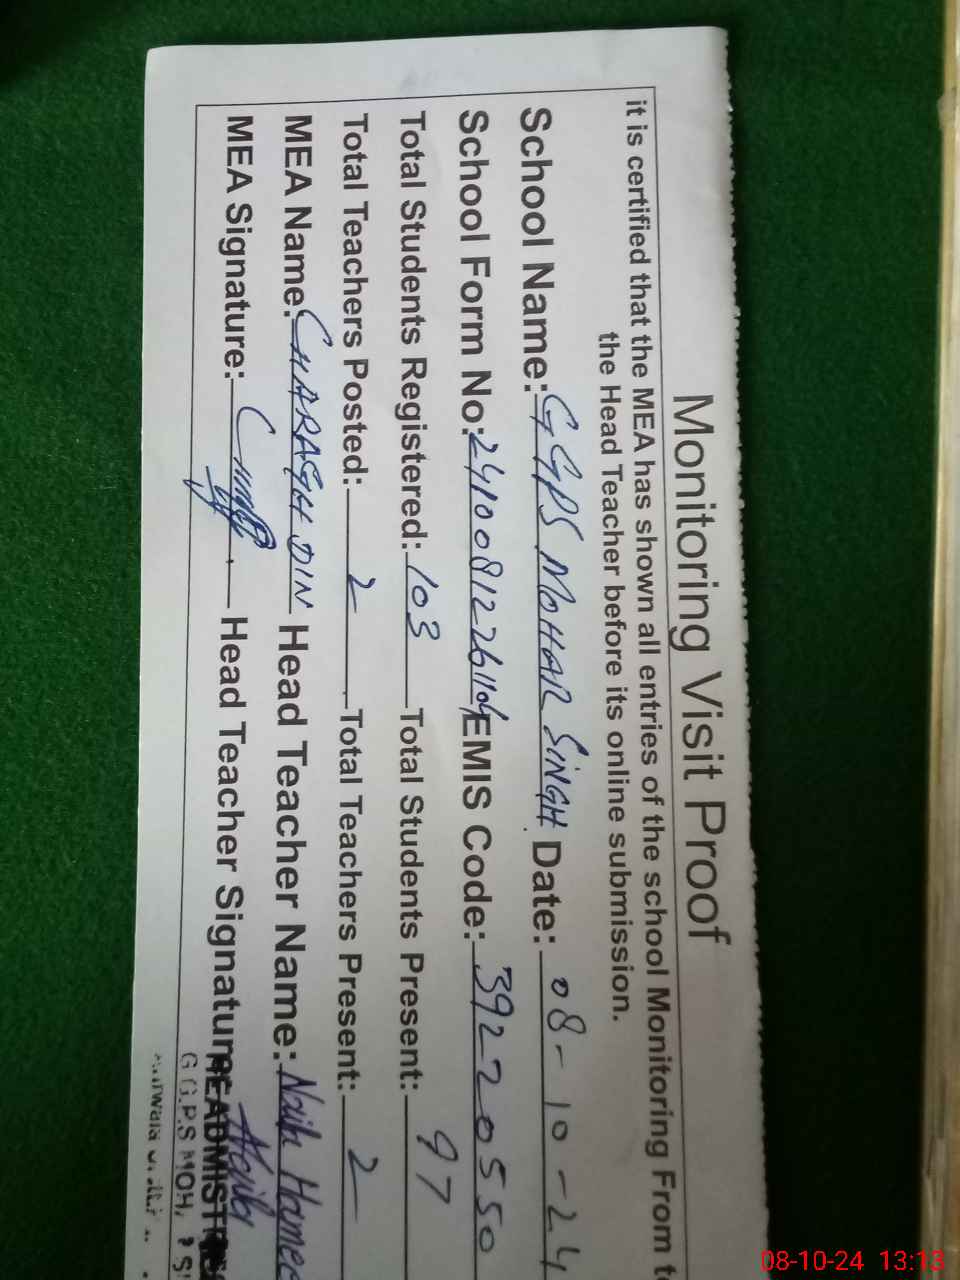 Monitoring Visit Proof
it is certified that the MEA has shown all entries of the school Monitoring From to
the Head Teacher before its online submission.
School Name: GGPS MOHAR SINGH Date: 08-10-24
School Form No: EMIS Code: 39220550
Total Students Registered: 103 Total Students Present: 97
Total Teachers Posted: 2 Total Teachers Present: 2
MEA Name: CHARAGH DIN Head Teacher Name:
MEA Signature: Head Teacher Signature
HEADMISTRESS
G.G.P.S MOHAR SI
08-10-24 13:13